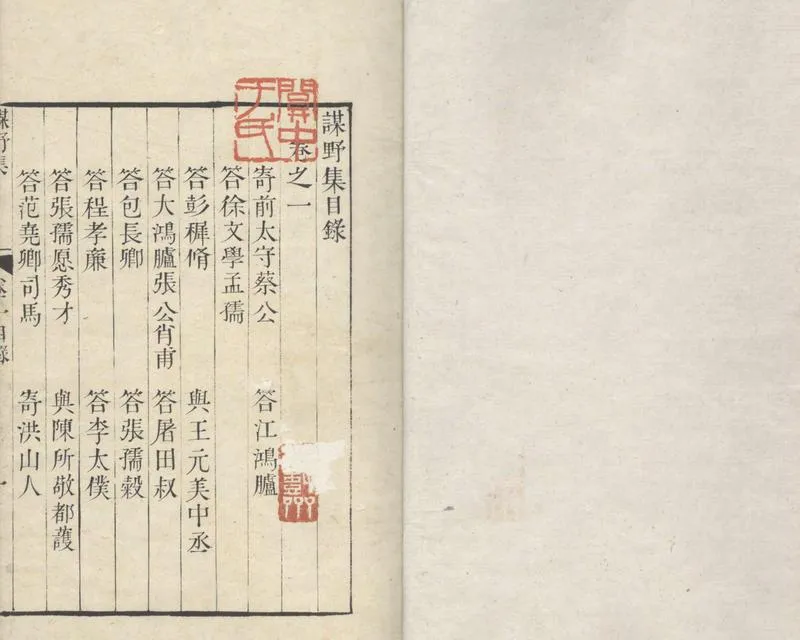 謀野集目錄
卷之一
寄前太守蔡公 答江鴻臚
答徐文學孟孺
答彭穉脩 與王元美中丞
答大鴻臚張公肖甫 答屠田叔
答包長卿 答張孺穀
答程孝廉 答李太僕
答張孺愿秀才 與陳所敬都護
答范堯卿司馬 寄洪山人
謀野集 卷一目錄 一
關中于氏